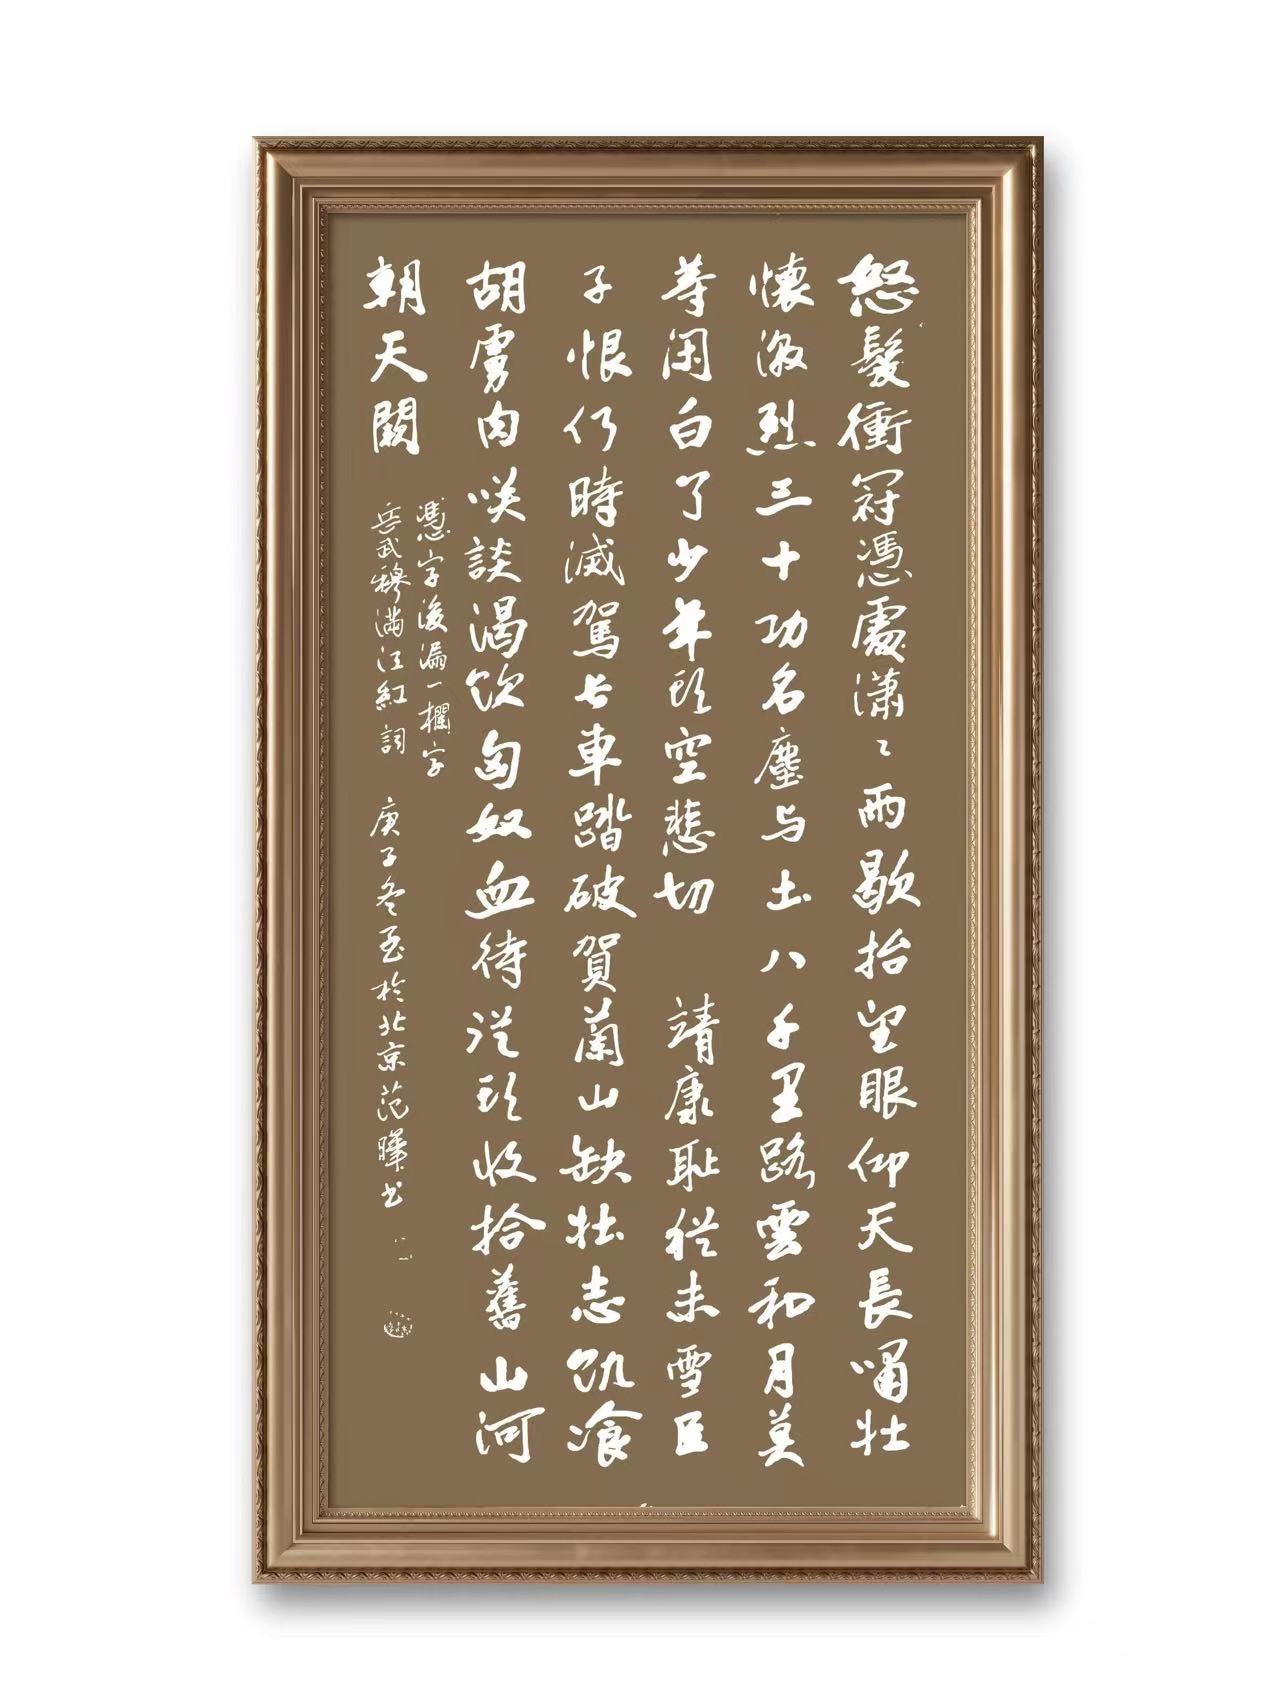 怒髮衝冠憑處瀟〻雨歇抬望眼仰天長嘯壯
懷激烈三十功名塵与土八千里路雲和月莫
等闲白了少年頭空悲切 靖康耻猶未雪臣
子恨何時滅駕長車踏破賀蘭山缺壯志飢飡
胡虜肉咲談渴飲匈奴血待從頭收拾舊山河
朝天闕
憑字後漏一欄字
岳武穆滿江紅詞 庚子冬至於北京范暉书